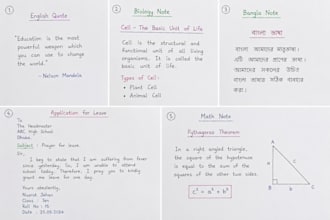 ①
English Quote
"Education is the most
powerful weapon which
you can use to change
the world."
- Nelson Mandela
②
Biology Note
Cell - The Basic Unit of Life
Cell is the structural and
functional unit of all living
organisms. It is called the
basic unit of life.
Types of Cell:
• Plant Cell
• Animal Cell
③
Bangla Note
বাংলা ভাষা
বাংলা আমাদের মাতৃভাষা।
এটি আমাদের প্রাণের ভাষা।
আমাদের সকলের উচিত
বাংলা ভাষার সঠিক ব্যবহার
করা।
④
Application for Leave
To
The Headmaster
ABC High School
Dhaka.
Subject : Prayer for leave.
Sir,
I beg to state that I am suffering from fever
since yesterday. So, I am unable to attend
school today. Therefore, I pray you to kindly
grant me leave for one day.
Yours obediently,
Nusrat Jahan
Class : Ten
Roll No : 15
Date : 25.05.2024
⑤
Math Note
Pythagoras Theorem
In a right angled triangle,
the square of the hypotenuse
is equal to the sum of the
squares of the other two sides.
c² = a² + b²
A
a
c
B
b
C